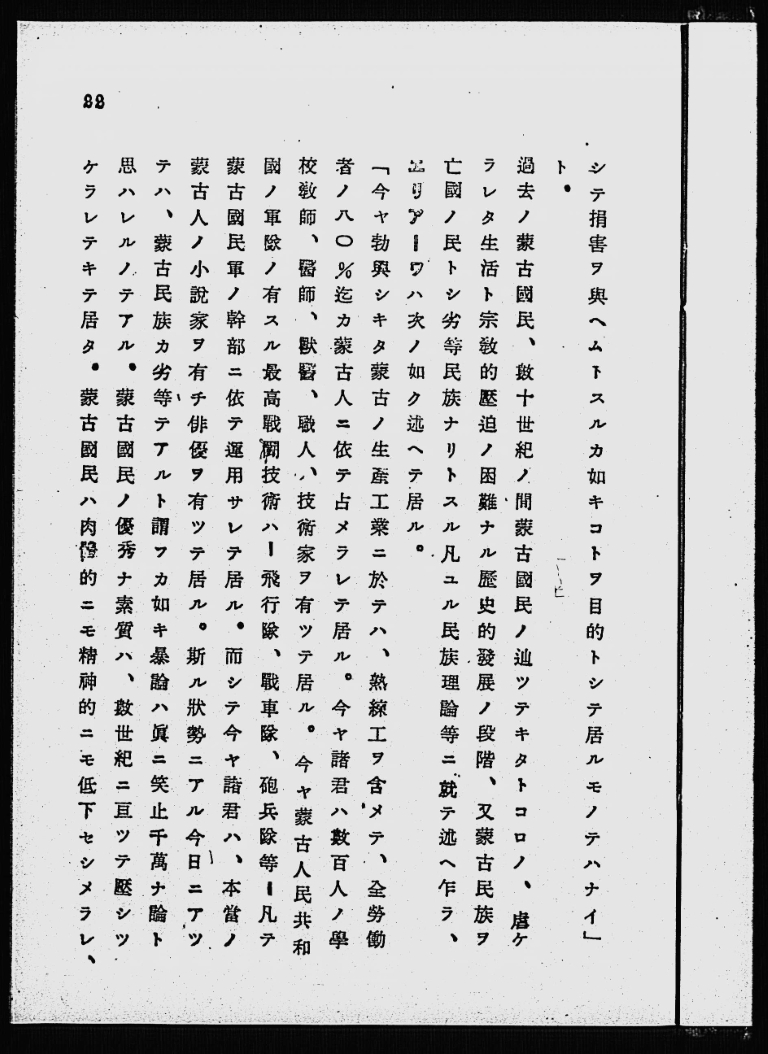 22
シテ損害ヲ與ヘムトスルカ如キコトヲ目的トシテ居ルモノテハナイ」
ト。
過去ノ蒙古國民、數十世紀ノ間蒙古國民ノ辿ツテキタトコロノ、虐ケ
ラレタ生活ト宗敎的壓迫ノ困難ナル歷史的發展ノ段階、又蒙古民族ヲ
亡國ノ民トシ劣等民族ナリトスル凡ユル民族理論等ニ就テ述ヘ乍ラ、
エリアーワハ次ノ如ク述ヘテ居ル。
「今ヤ勃興シキタ蒙古ノ生產工業ニ於テハ、熟練工ヲ含メテ、全勞働
者ノ八〇％迄カ蒙古人ニ依テ占メラレテ居ル。今ヤ諸君ハ數百人ノ學
校敎師、醫師、獸醫、職人、技術家ヲ有ツテ居ル。今ヤ蒙古人民共和
國ノ軍隊ノ有スル最高戰鬪技術ハー飛行隊、戰車隊、砲兵隊等ー凡テ
蒙古國民軍ノ幹部ニ依テ運用サレテ居ル。而シテ今ヤ諸君ハ、本當ノ
蒙古人ノ小說家ヲ有チ俳優ヲ有ツテ居ル。斯ル狀勢ニアル今日ニアツ
テハ、蒙古民族カ劣等テアルト謂フカ如キ暴論ハ眞ニ笑止千萬ナ論ト
思ハレルノテアル。蒙古國民ノ優秀ナ素質ハ、數世紀ニ亘ツテ壓シツ
ケラレテキテ居タ。蒙古國民ハ肉體的ニモ精神的ニモ低下セシメラレ、